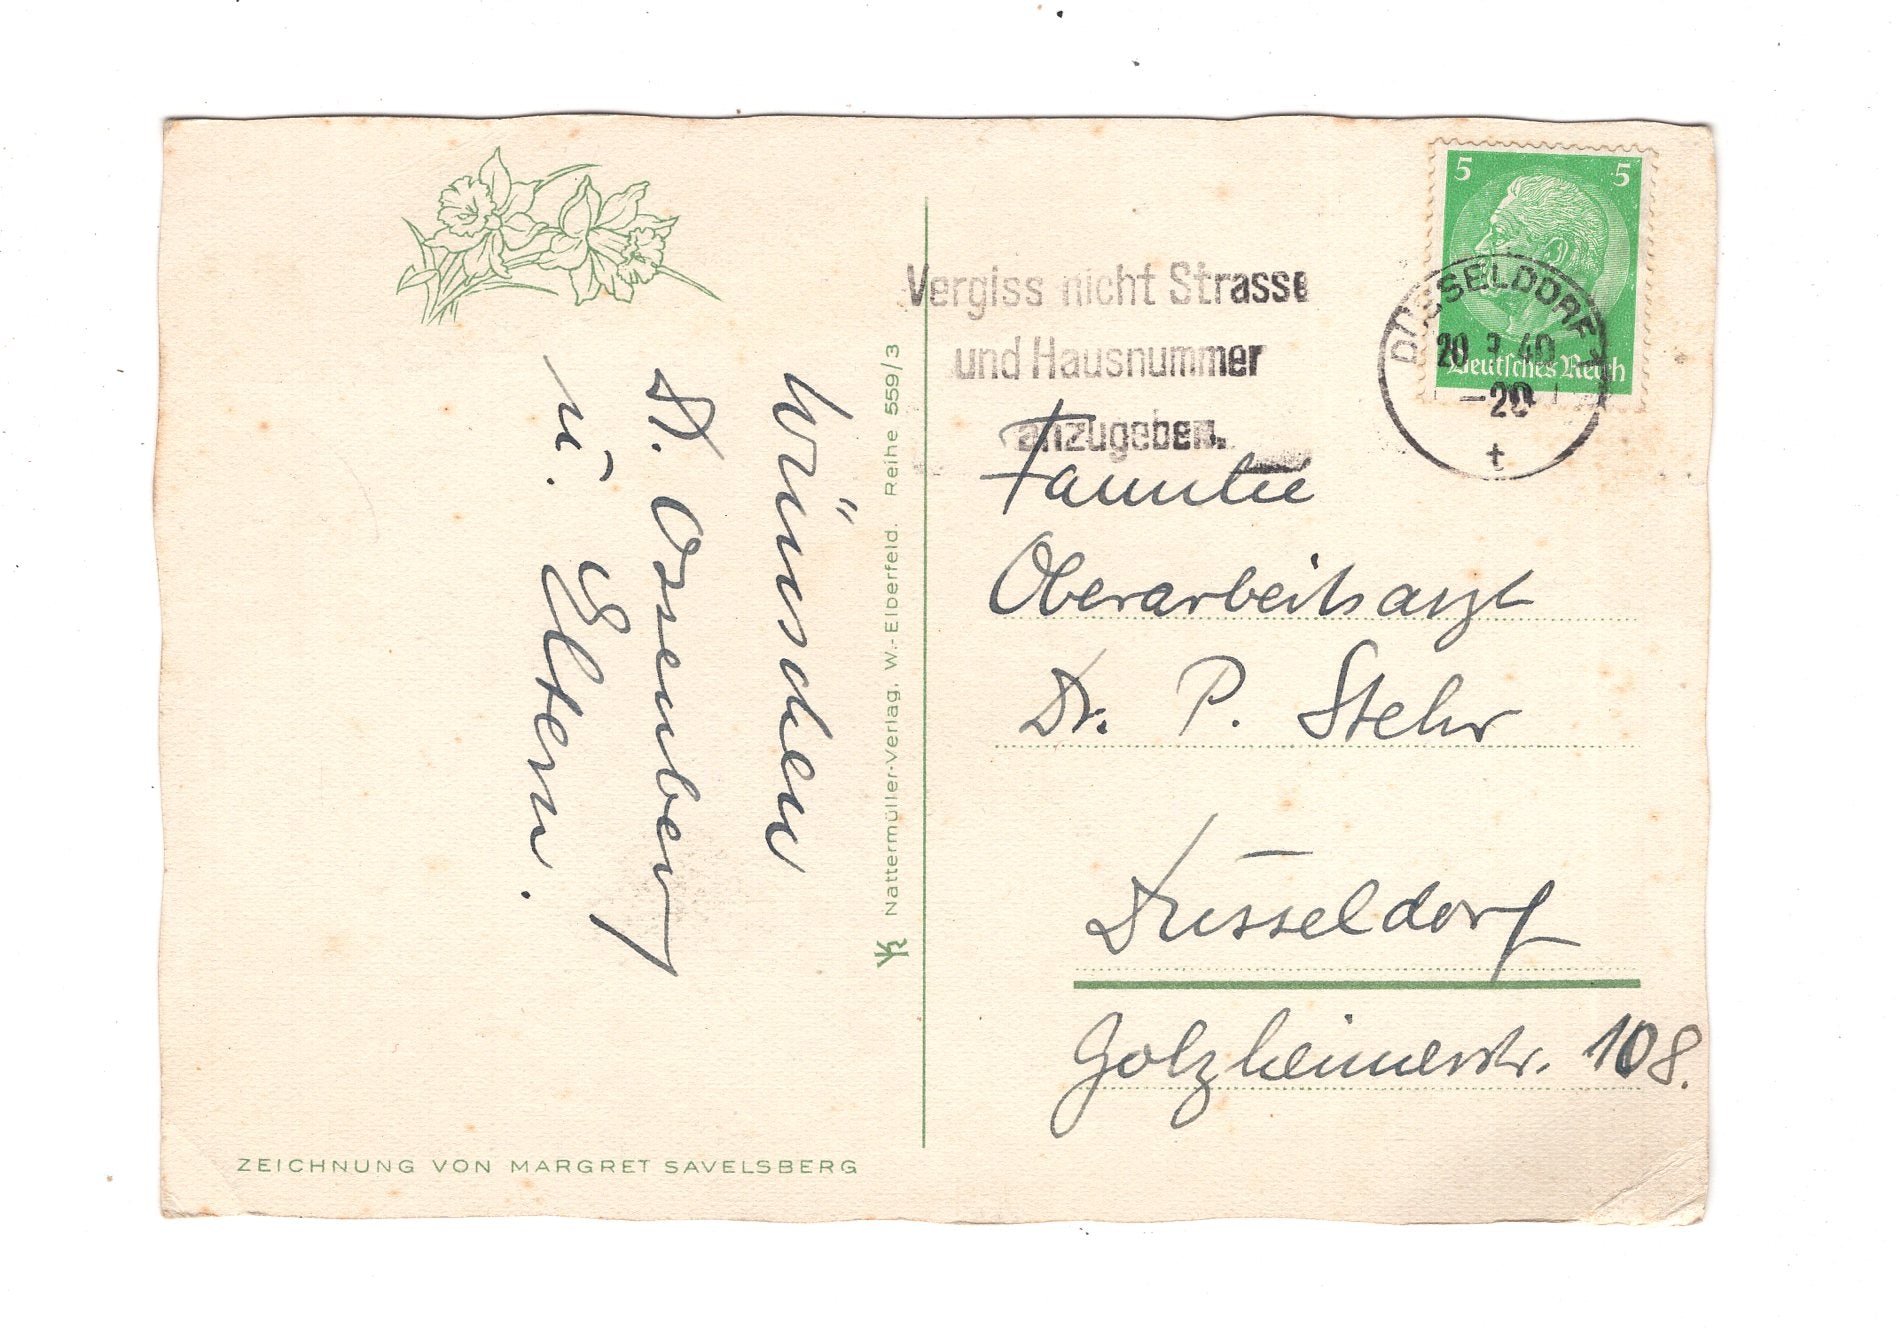 Vergiss nicht Strasse
und Hausnummer
anzugeben.
5 5
Deutsches Reich
DÜSSELDORF
20 3 40
-20
t
wünschen
A. Ossenberg
u. Eltern.
Nattermüller-Verlag, W.-Elberfeld. Reihe 559/3
Familie
Oberarbeitsarzt
Dr. P. Stehr
Düsseldorf
Golzheimerstr. 108.
ZEICHNUNG VON MARGRET SAVELSBERG